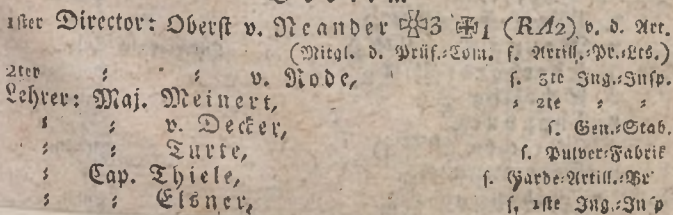 1ster Director: Oberst v. Neander 3 1 (RA2) v. d. Art.
(Mitgl. d. Prüf.=Com. f. Artill.=Pr.=Lts.)
2ter = = v. Rode, s. 3te Ing.=Insp.
Lehrer: Maj. Meinert, = 2te = =
= = v. Decker, s. Gen.=Stab.
= = Turte, s. Pulver=Fabrik
= Cap. Thiele, s. Garde=Artill.=Br
= = Elsner, s. 1ste Ing.=Insp